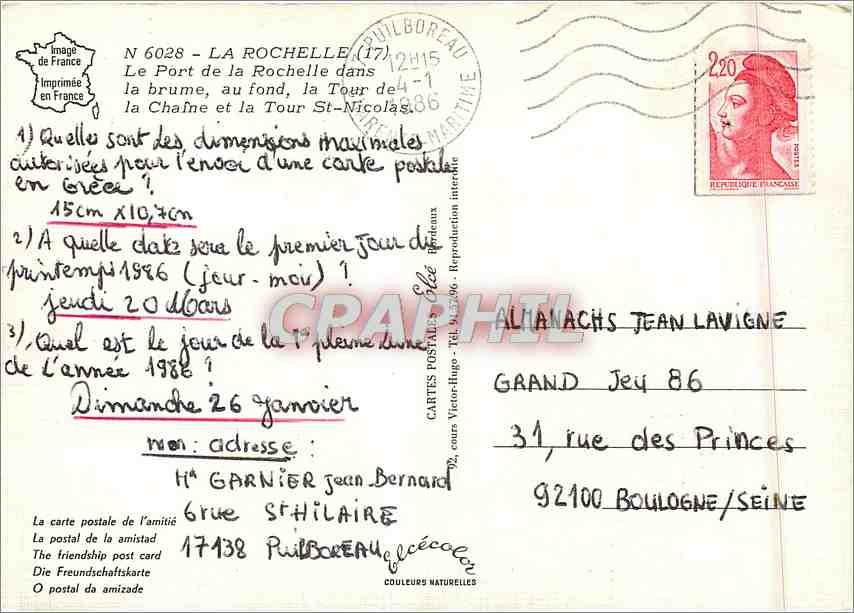 Image
de France
Imprimée
en France
N 6028 - LA ROCHELLE (17)
Le Port de la Rochelle dans
la brume, au fond, la Tour de
la Chaîne et la Tour St-Nicolas.
PUILBOREAU
12H15
4-1
1986
MARITIME
2,20
POSTES
REPUBLIQUE FRANÇAISE
1) Quelles sont les dimensions maximales
autorisées pour l'envoi d'une carte postale
en Grèce ?
15cm x 10,7cm
2) A quelle date sera le premier jour du
printemps 1986 (jour - mois) ?
jeudi 20 Mars
3) Quel est le jour de la 1e pleine lune
de l'année 1986 ?
Dimanche 26 Janvier
mon: adresse :
Mr GARNIER Jean Bernard
6 rue St HILAIRE
17138 PUILBOREAU
CARTES POSTALES Elcé Bordeaux
92, cours Victor-Hugo - Tél. 91.57.96 - Reproduction interdite
CPAPHIL
ALMANACHS JEAN LAVIGNE
GRAND JEU 86
31, rue des Princes
92100 BOULOGNE/SEINE
La carte postale de l'amitié
La postal de la amistad
The friendship post card
Die Freundschaftskarte
O postal da amizade
elcécolor
COULEURS NATURELLES